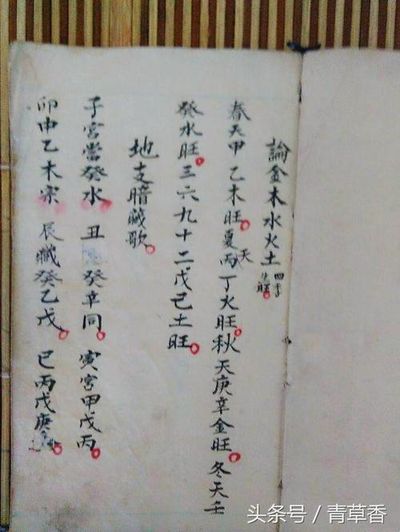 論金木水火土四季生旺
春天甲乙木旺夏天丙丁火旺秋天庚辛金旺冬天壬
癸水旺三六九十二戊己土旺
地支暗藏歌
子宮當癸水丑 癸辛同寅宮甲戊丙
卯申乙木宗辰藏癸乙戊巳丙戊庚
头条号 / 青草香